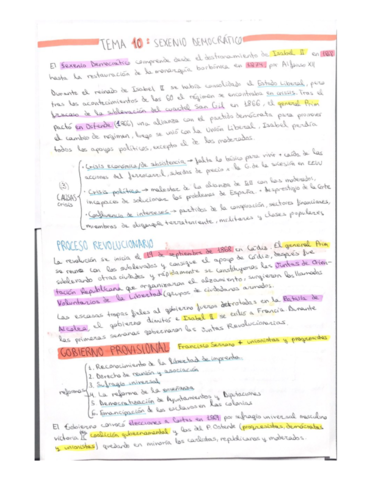 TEMA 10: SEXENIO DEMOCRÁTICO
El Sexenio Democrático comprende desde el destronamiento de Isabel II en 1868
hasta la restauración de la monarquía borbónica en 1874 por Alfonso XII
Durante el reinado de Isabel II se había consolidado el Estado liberal, pero
tras los acontecimientos de los 60 el régimen se encontraba en crisis. Tras el
fracaso de la sublevación del cuartel San Gil en 1866, el general Prim
pactó en Ostende (1866) una alianza con el partido demócrata para promover
el cambio de régimen, luego se unió con la Unión Liberal, Isabel perdía
todos los apoyos políticos, excepto el de los moderados
Crisis económica de subsistencia → falta lo básico para vivir + caída de las
acciones del ferrocarril, precio y la G de la secesión en EEUU
(3)
CAUSAS
Crisis política → malestar de la alianza de 68 con los moderados,
incapaces de solucionar los problemas de España, desprestigio de la Corte
de intereses → partidos de la oposición, sectores financieros,
miembros de alta y clases populares
PROCESO REVOLUCIONARIO
La revolución se inicia el 19 de septiembre de 1868 en Cádiz. El general Prim
se reúne con los sublevados y consigue el apoyo de Cádiz, después fue
sublevando otras ciudades y rápidamente se constituyeron las Juntas de
Revolucionaria que organizaron el alzamiento, surgieron los llamados
Voluntarios de la Libertad (grupos de ciudadanos armados)
Las escasas tropas fieles al gobierno fueron derrotadas en la Batalla de
Alcolea, el gobierno dimitió e Isabel II se exilió a Francia. Durante
las primeras semanas gobernaron las Juntas Revolucionarias.
GOBIERNO PROVISIONAL Francisco Serrano + unionistas y progresistas
1. Reconocimiento de la libertad de imprenta
2. Derecho de reunión y asociación
3. Sufragio universal
reformas 4. La reforma de la enseñanza
5. Democratización de Ayuntamientos y Diputaciones
6. Emancipación de los esclavos en las colonias
El Gobierno convocó elecciones a Cortes en 1869 por sufragio universal masculino
victoria coalición gubernamental y los del P Ostende (progresistas, demócratas
y unionistas) quedando en minoría los carlistas, republicanos y moderados